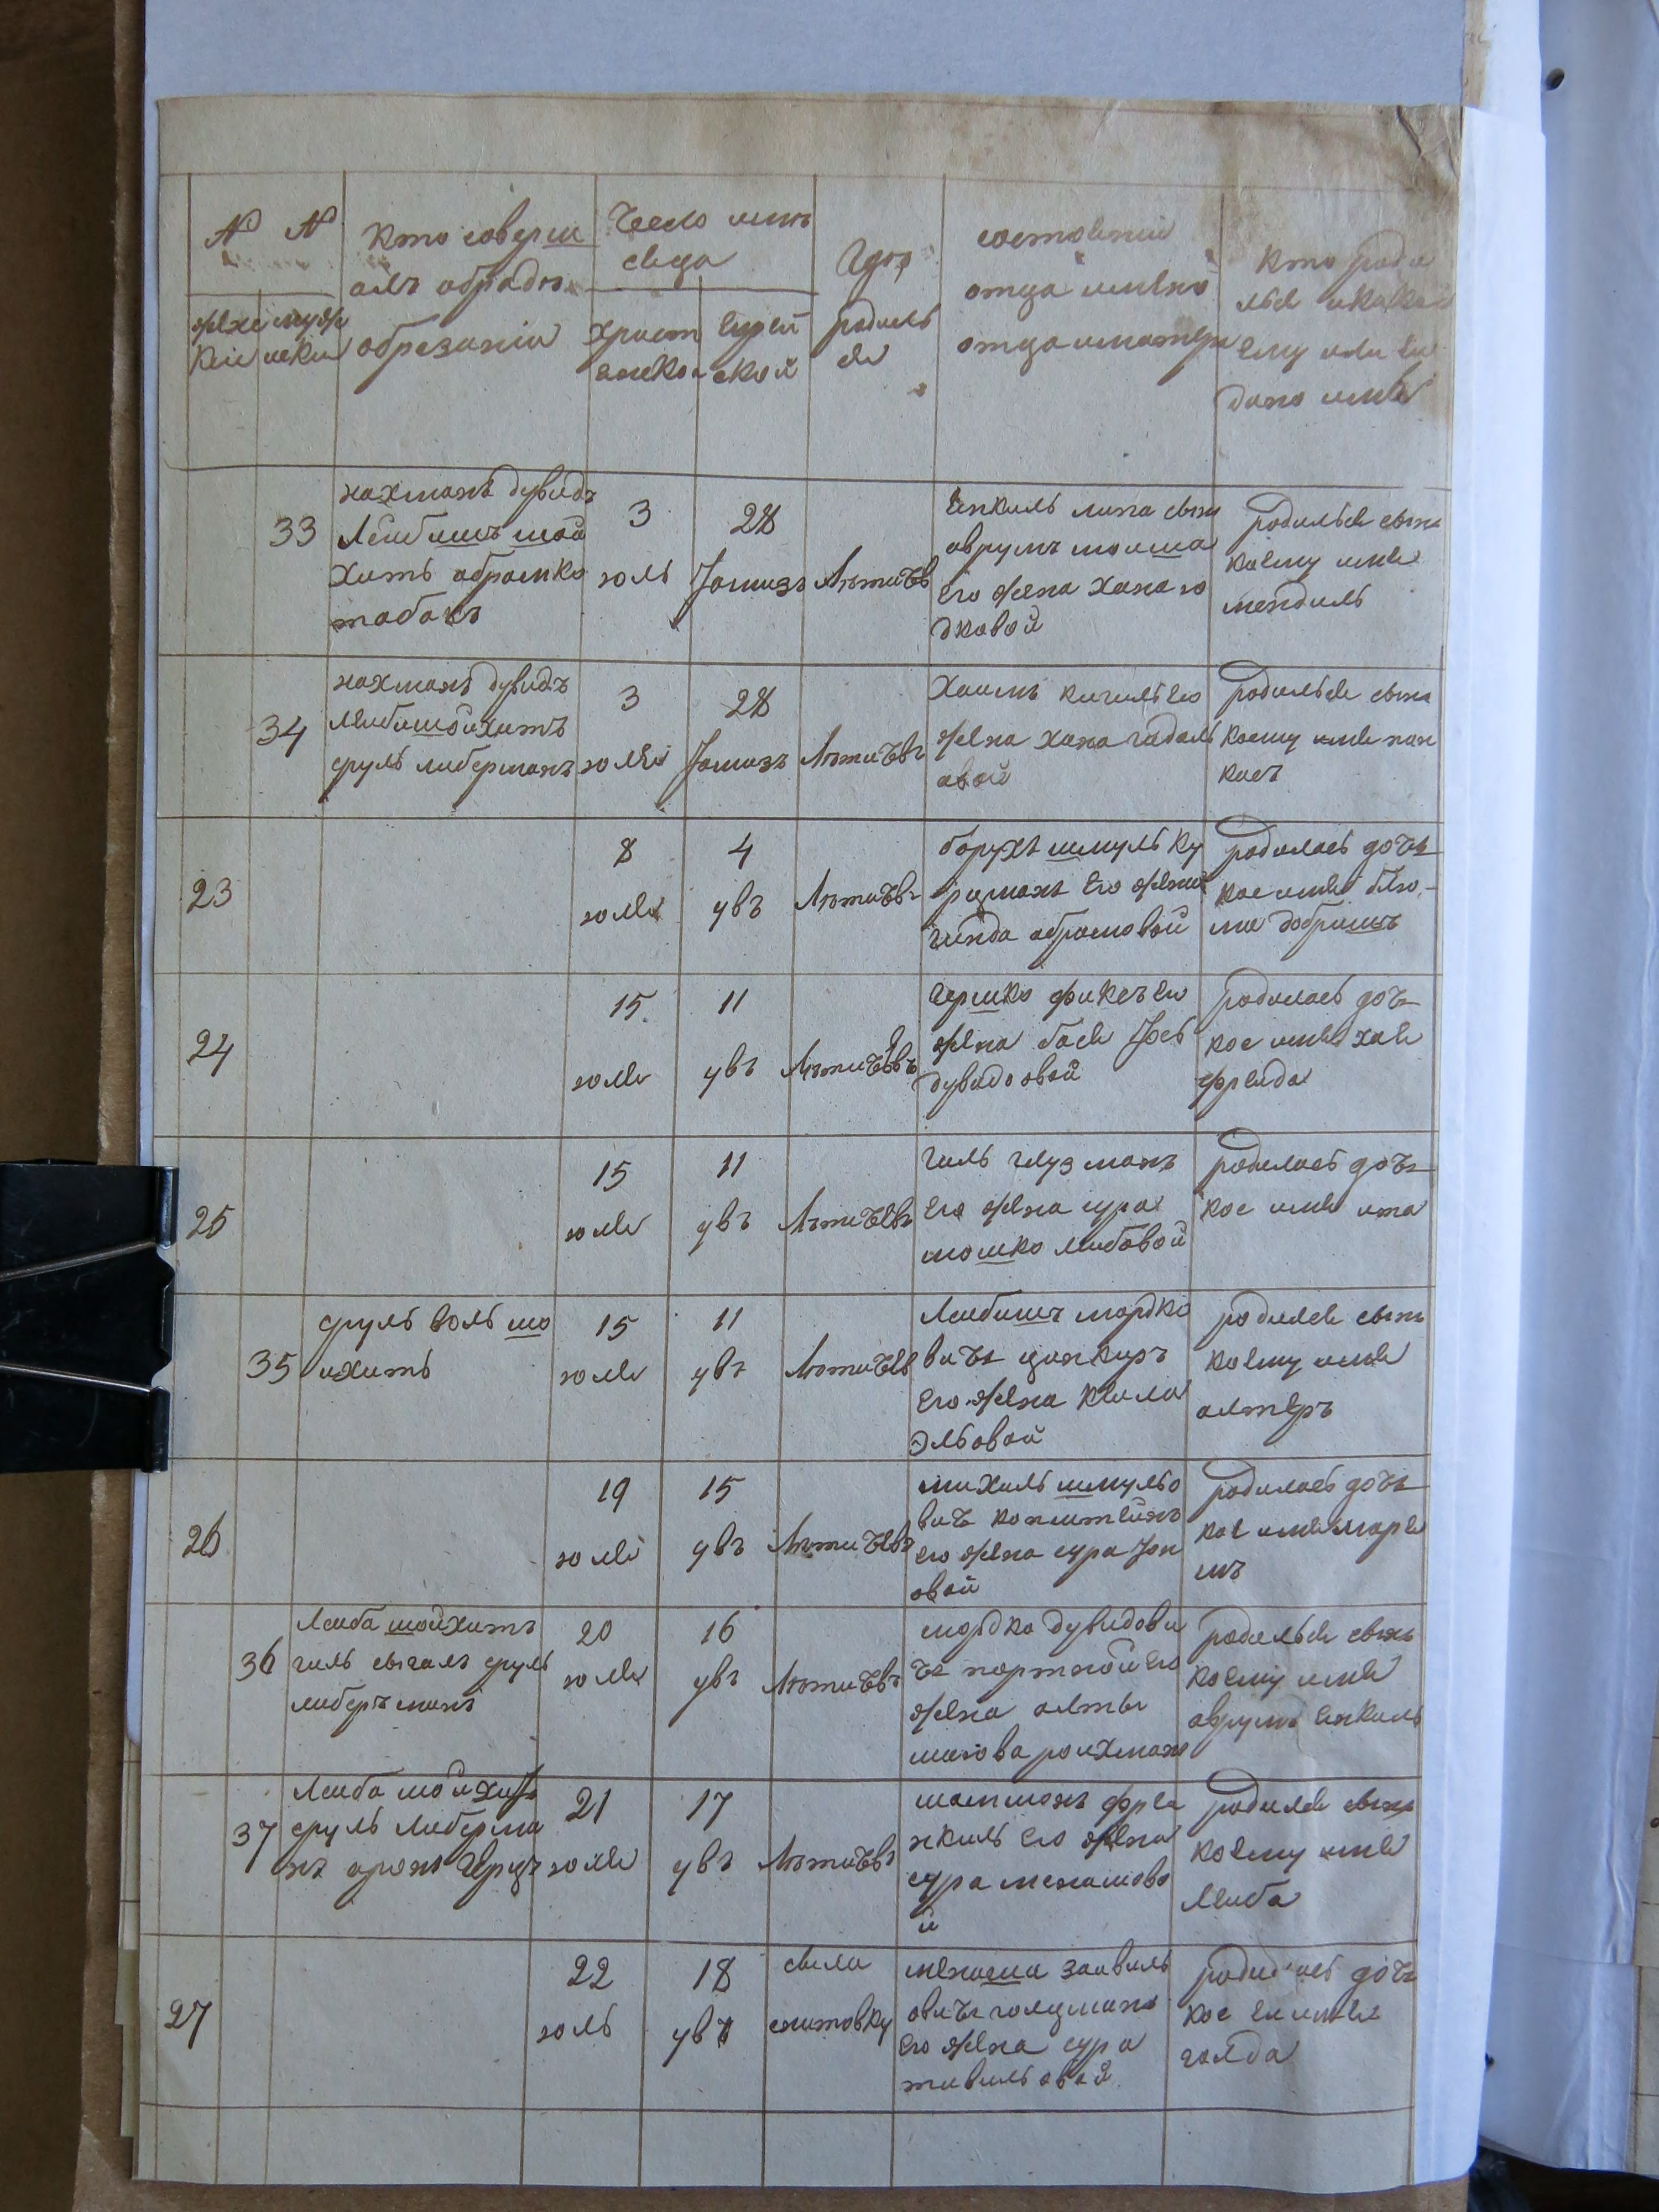 N N
кто соверш
алъ обрадъ
обрезанія
Число
христ
еврей
ской
где
родиль
ся
отца имяно
отца иматери
кто роди
ему или ей
дано имя
33
нахманъ дувидъ
Лейбишъ шой
хитъ абрамко
табакъ
3
юль
28
Тамизъ
Лятичевъ
Енкиль липа сынъ
аврумъ моиша
его жена хана ю
дковой
родилься сынъ
коему имя
мендиль
34
нахманъ дувидъ
лейбишойхитъ
сруль либерманъ
3
юля
28
Тамизъ
Лятичевъ
Хаимъ кигиль его
жена хана гадаль
овой
родилься сынъ
коему имя пин
касъ
23
8
юля
4
увъ
Лятичевъ
борухъ шмуль ку
рцманъ его жена
гинда абрамовой
родилась дочь
кое имя блю
ма добришъ
24
15
юля
11
увъ
Лятичевъ
гершко фиксъ его
жена бася Іось
дувидоовой
родилась дочь
кое имя хая
фрейда
25
15
юля
11
увъ
Лятичевъ
гиль глузманъ
его жена сура
мошко лейбовой
родилась дочь
кое имя ита
35
сруль воль шо
ихитъ
15
юля
11
увъ
Лятичевъ
Лейбишъ мордко
вичъ цинкиръ
его жена кейла
эльовой
родился сынъ
коему имя
алтеръ
26
19
юля
15
увъ
Лятичевъ
михиль шмульо
вичъ капштейнъ
его жена сура Іон
овой
родилась дочь
кое имя марья
мъ
36
Лейба шойхитъ
гиль сыгалъ сруль
либеръманъ
20
юля
16
увъ
Лятичевъ
мордко дувидови
чъ портной его
жена алты
шазова ройхман
родилься сынъ
коему имя
аврумъ Енкиль
37
Лейба шойхитъ
сруль Либерма
нъ аронъ Герцъ
21
юля
17
увъ
Лятичевъ
шатманъ фре
нкиль его жена
сура менашово
й
родился сынъ
коему имя
Лейба
27
22
юль
18
увъ
села
снитовку
менаша заивиль
овичъ голцманъ
его жена сура
тевильовой
родилась дочь
кое ей имя
голда